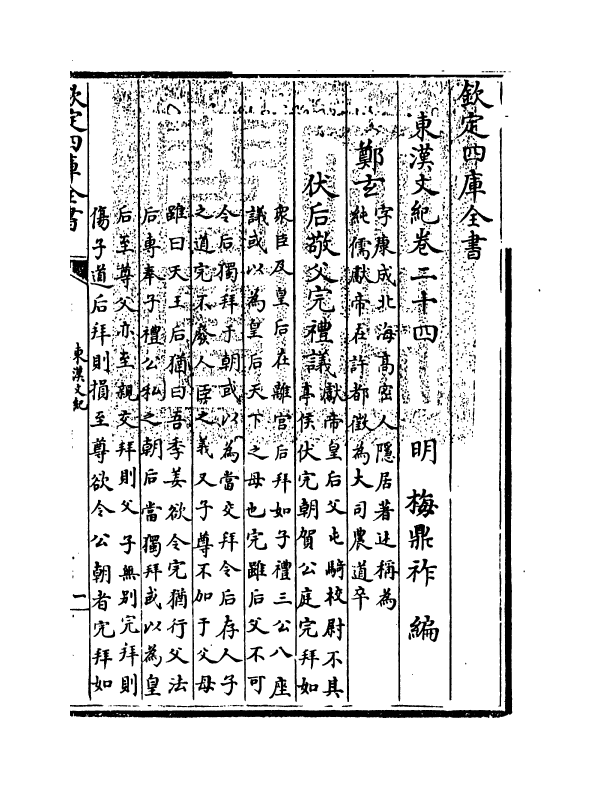 欽定四庫全書
東漢文紀卷二十四 明 梅鼎祚 編
鄭玄
字康成北海高密人隱居著述稱為
純儒獻帝在許都徵為大司農道卒
伏后敬父完禮議
獻帝皇后父屯騎校尉不其
亭侯伏完朝賀公庭完拜如
衆臣及皇后在離宫后拜如子禮三公八座
議或以為皇后天下之母也完雖后父不可
令后獨拜于朝或以為當交拜令后存人子
之道完不廢人臣之義又子尊不加于父母
雖曰天王后猶曰吾季姜欲令完猶行父法
后專奉子禮公私之朝后當獨拜或以為皇
后至尊父亦至親交拜則父子無别完拜則
傷子道后拜則損至尊欲令公朝者完拜如
欽定四庫全書
東漢文紀
一